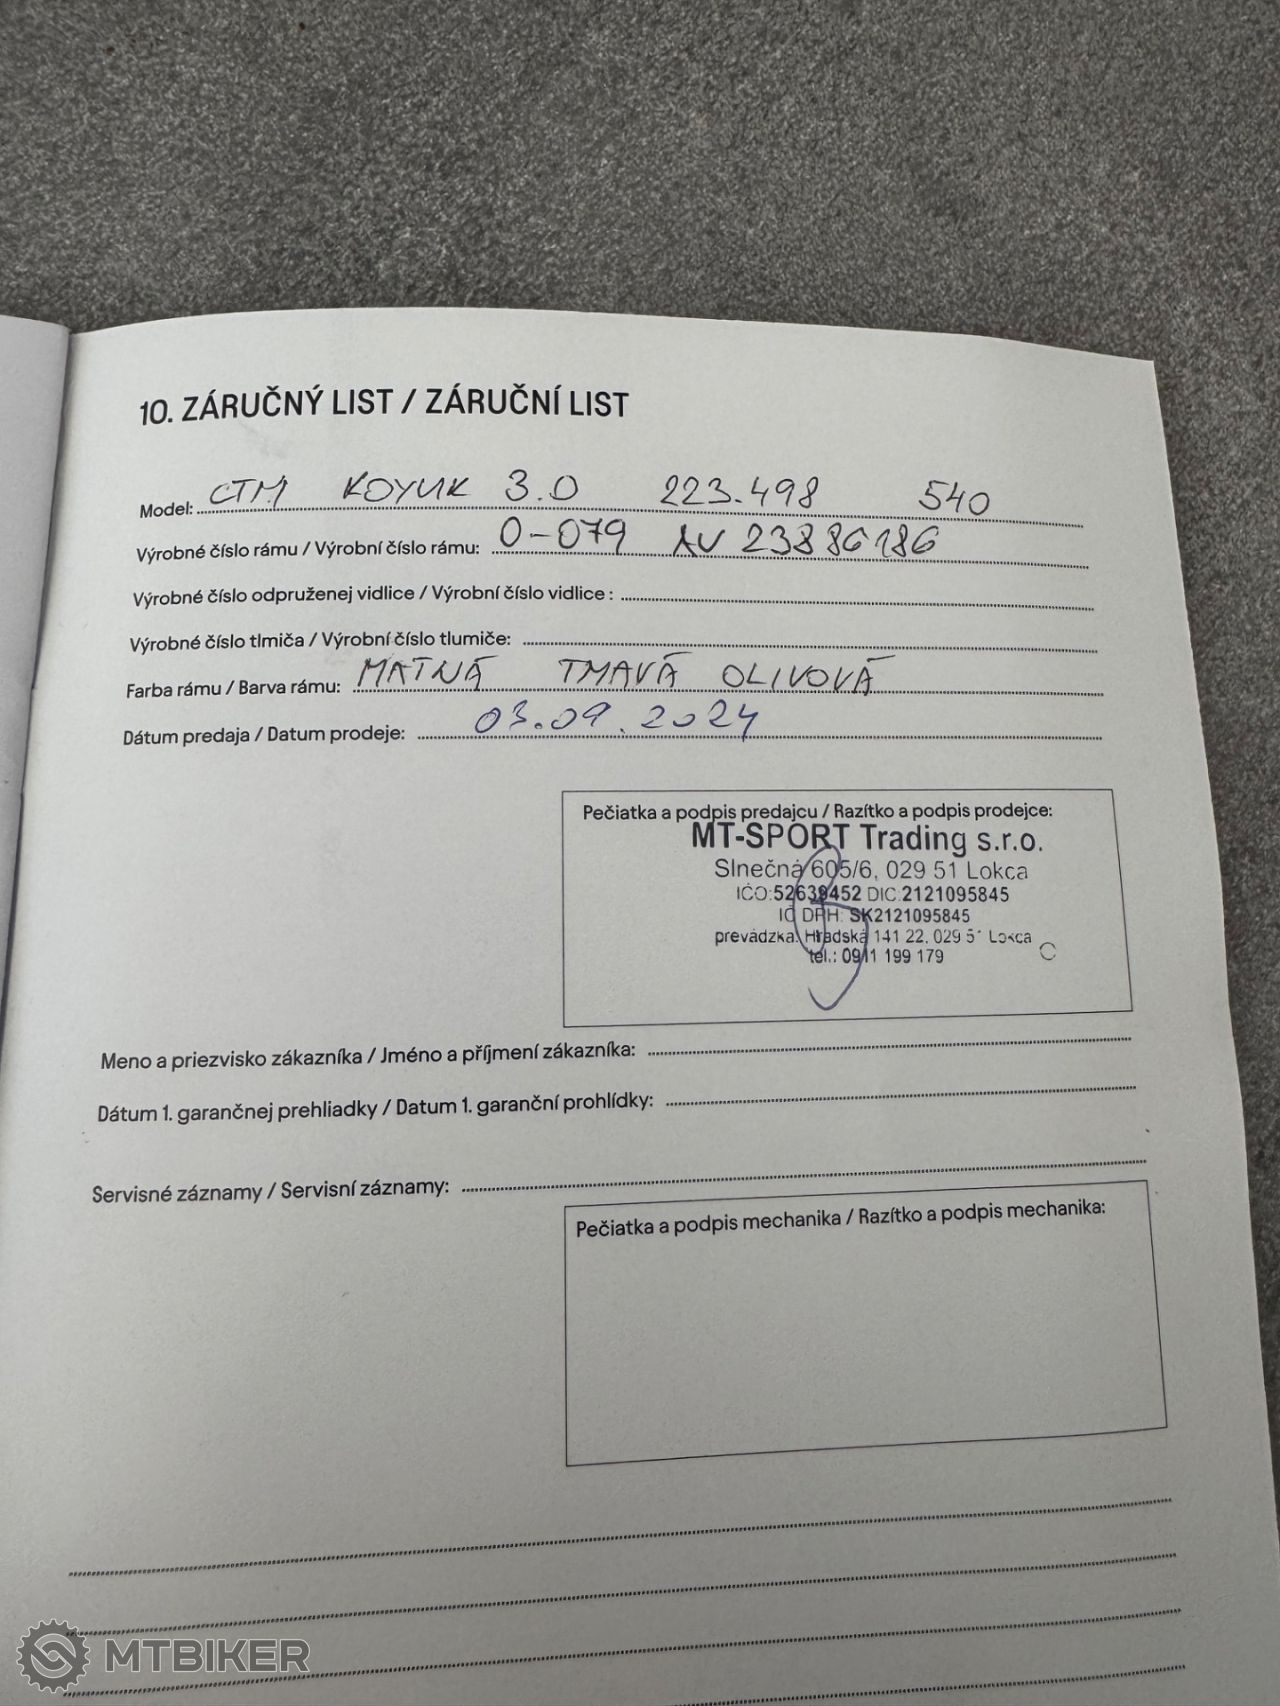 10. ZÁRUČNÝ LIST / ZÁRUČNÍ LIST
Model: CTM KOYUK 3.0 223.498 540
Výrobné číslo rámu / Výrobní číslo rámu: 0-079 AV 23886186
Výrobné číslo odpruženej vidlice / Výrobní číslo vidlice :
Výrobné číslo tlmiča / Výrobní číslo tlumiče:
Farba rámu / Barva rámu: MATNÁ TMAVÁ OLIVOVÁ
Dátum predaja / Datum prodeje: 03.09.2024
Pečiatka a podpis predajcu / Razítko a podpis prodejce:
MT-SPORT Trading s.r.o.
Slnečná 605/6, 029 51 Lokca
IČO:52639452 DIC:2121095845
IC DPH: SK2121095845
prevádzka: Hradská 141 22, 029 51 Lokca
tel.: 0911 199 179
Meno a priezvisko zákazníka / Jméno a příjmení zákazníka:
Dátum 1. garančnej prehliadky / Datum 1. garanční prohlídky:
Servisné záznamy / Servisní záznamy:
Pečiatka a podpis mechanika / Razítko a podpis mechanika:
MTBIKER